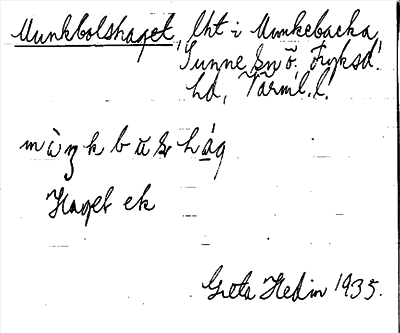 Munkbolshaget, lht i Munkebacka,
Sunne sn ö. Fryksd.
hd, Värml. l.
mùŋkbɷshág
Haget ek
Greta Hedin 1935.